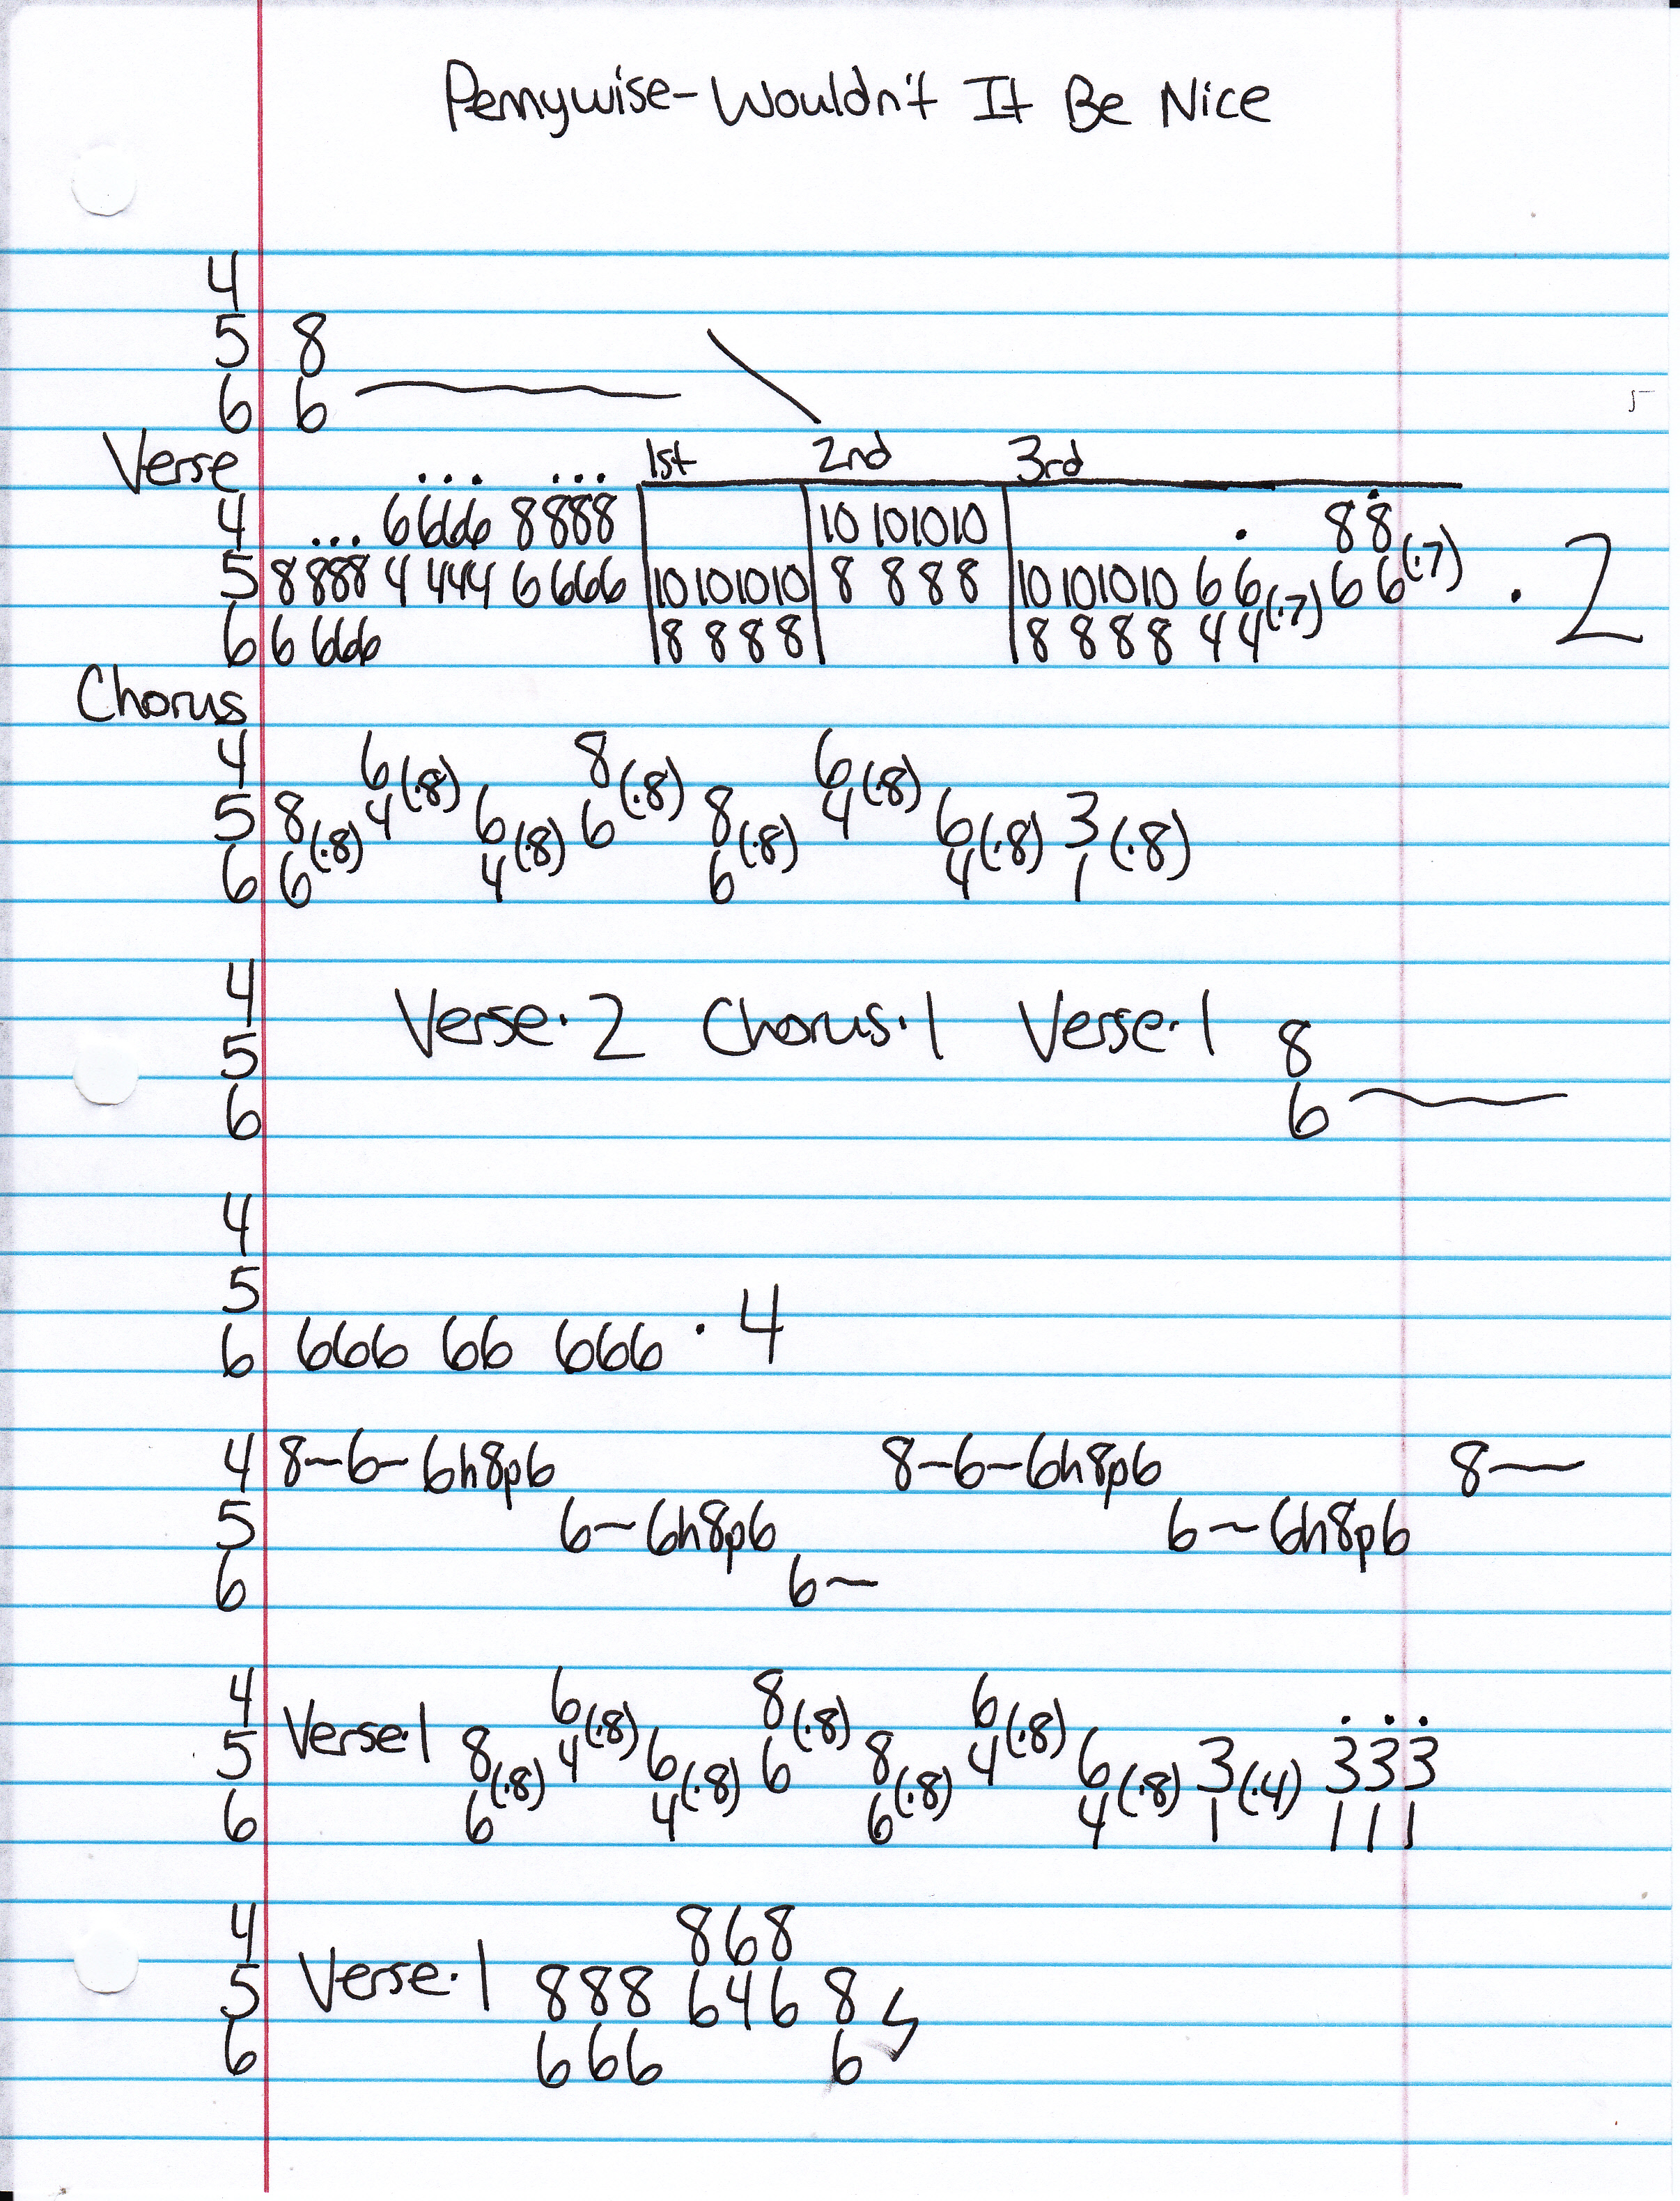 Pennywise-Wouldn't It Be Nice
4
5 8
6 6
Verse ... ... 1st 2nd 3rd
4 ... 6666 8888 10 101010 . 88
5 8 888 4 444 6 666 10101010 8 8 8 8 10 101010 6 6(·7) 6 6(·7) · 2
6 6 666 8 8 8 8 8 8 8 8 4 4
Chorus
4 6(·8) 8(·8) 6(·8)
5 8(·8) 4 6(·8) 6 8(·8) 4 6(·8) 3(·8)
6 6 4 6 4 1
4
5 Verse·2 Chorus·1 Verse·1 8
6 6
4
5
6 666 66 666 · 4
4 8~6-6h8p6 8-6-6h8p6 8~
5 6~6h8p6 6~6h8p6
6 6~
4 6(·8) 8(·8) 6(·8) . . .
5 Verse·1 8(·8) 4 6(·8) 6 8(·8) 4 6(·8) 3(·4) 333
6 6 4 6 4 1 111
4 868
5 Verse·1 888 646 8
6 666 6